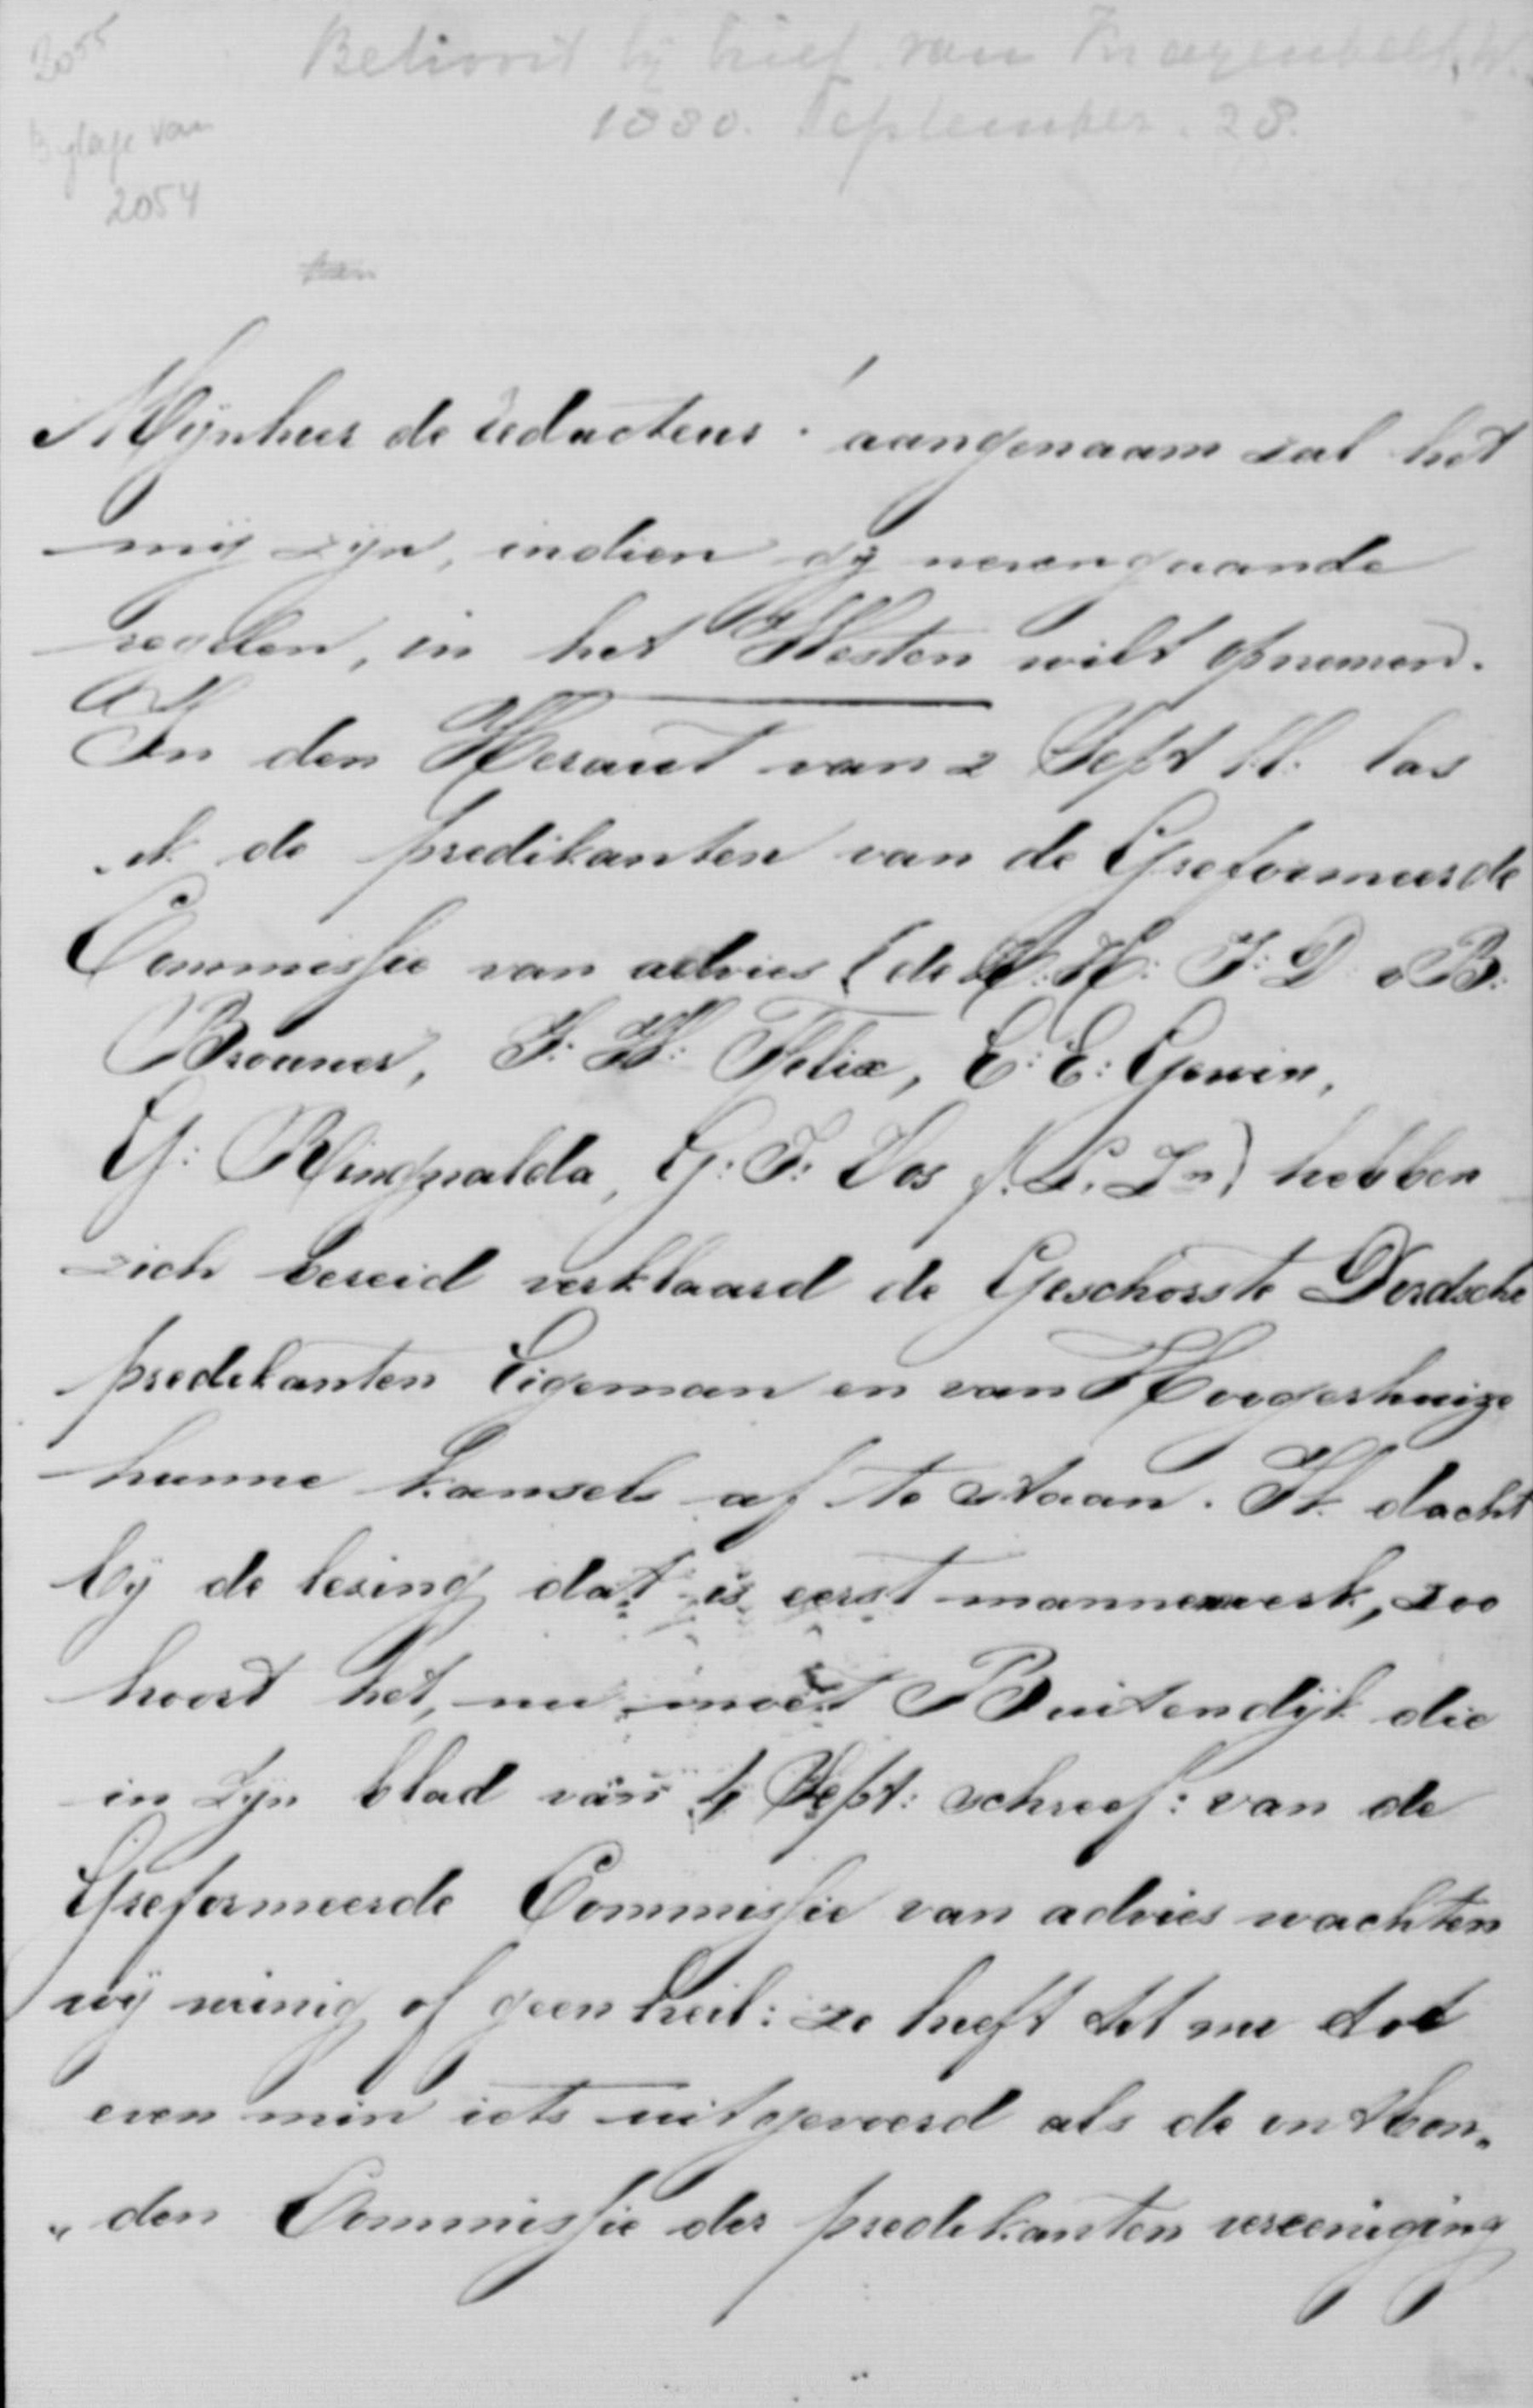 2055
Behoort bij brief van Kragenbelt, W.
1880. September. 28.
Bijlage van
2054
aan
Mijnheer de redacteur! aangenaam zal het
mij zijn, indien gij nevengaande
regelen, in het Westen wilt opnemen.
In den Heraut van 2 Sept l.l. las
ik de predikanten van de Gereformeerde
Commissie van advies (de H. H. J: D v B:
Brouwer, J: W: Felix, E: E: Gewin,
G: Ringnalda, G: J: Vos f. L. Zn) hebben
zich bereid verklaard de Geschorste Dordsche
predikanten Eigeman en van Hoogerhuize
hunne kansels af te staan. Ik dacht
bij de lezing dat is eerst mannenwerk, zoo
hoort het, nu moet Buitendijk die
in zijn blad van 4 Sept: schreef: van de
Gereformeerde Commissie van advies wachten
wij weinig of geen heil: ze heeft tot nu toe
even min iets uitgevoerd als de ontbon„
„den Commissie der predikanten vereeniging